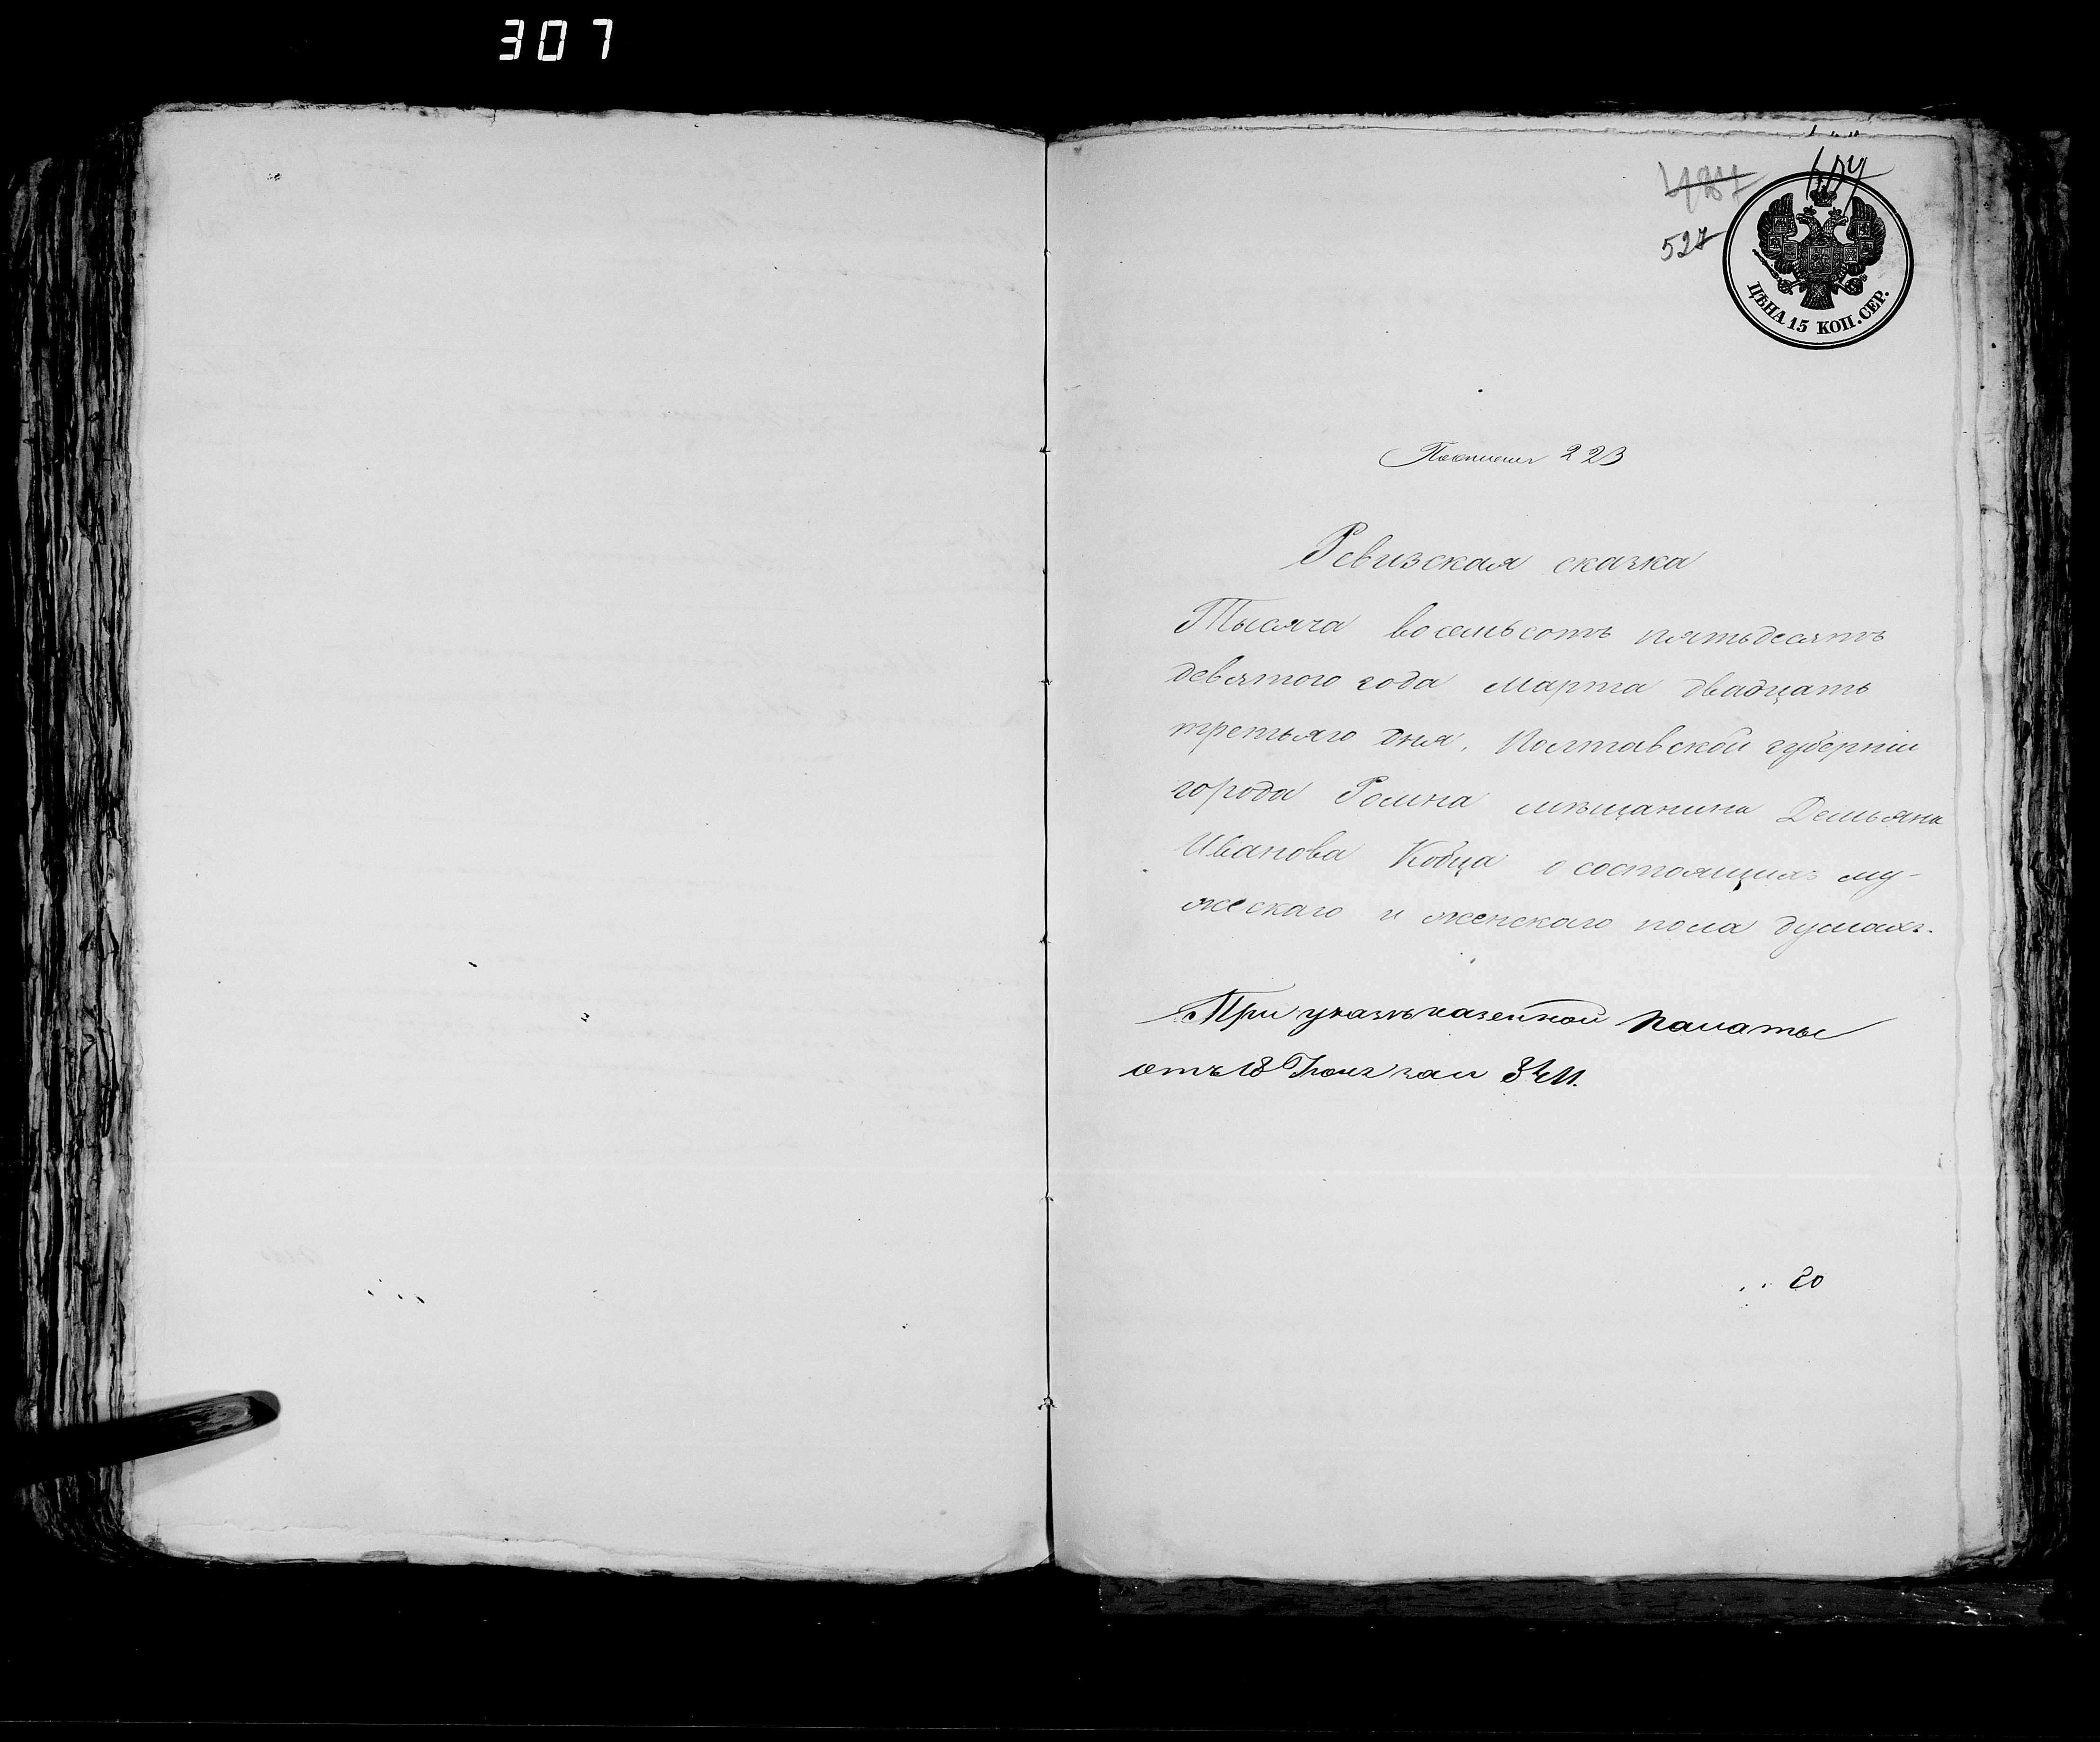 307
527
ЦѢНА 15 КОП. СЕР.
223
Ревизская сказка
Тысяча восемьсотъ пятьдесятъ
девятого года Марта двадцать
третьяго дня, Полтавской губерніи
города Ромна мѣщанина Демьяна
Иванова Кобца о состоящихъ му-
жескаго и женскаго пола душахъ.
При указѣ казенной палаты
отъ 18
20